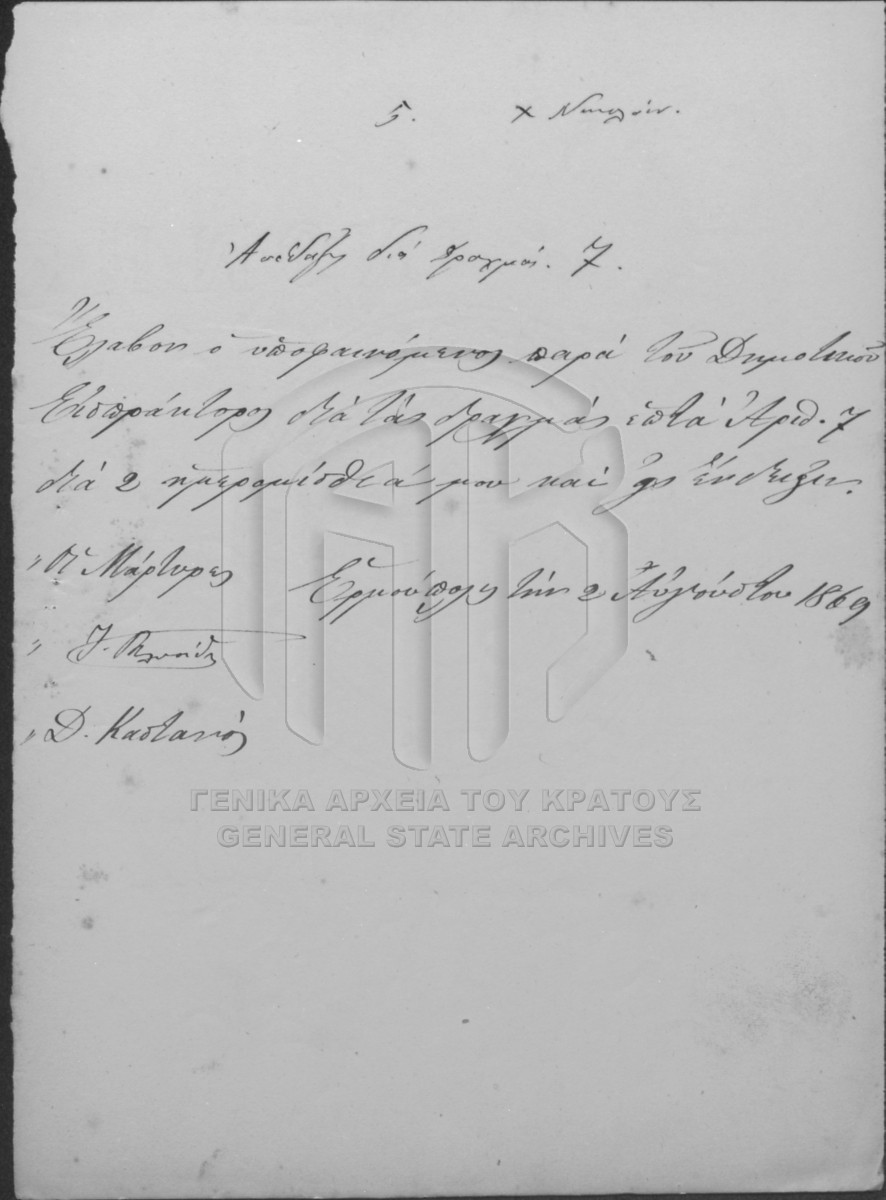 5.
Ἀπόδειξις διὰ δραχμάς. 7.
Ἔλαβον ὁ ὑποφαινόμενος παρά τοῦ Δημοτικοῦ
Εἰσπράκτορος διά τάς δραχμάς ἑπτά Ἀριθ. 7
διά 2 ἡμερομίσθιά μου καί εἰς ἔνδειξιν.
„ Οἱ Μάρτυρες
Ἑρμούπολις τήν 2 Αὐγούστου 1869
„ Δ. Καστανός
ΓΕΝΙΚΑ ΑΡΧΕΙΑ ΤΟΥ ΚΡΑΤΟΥΣ
GENERAL STATE ARCHIVES